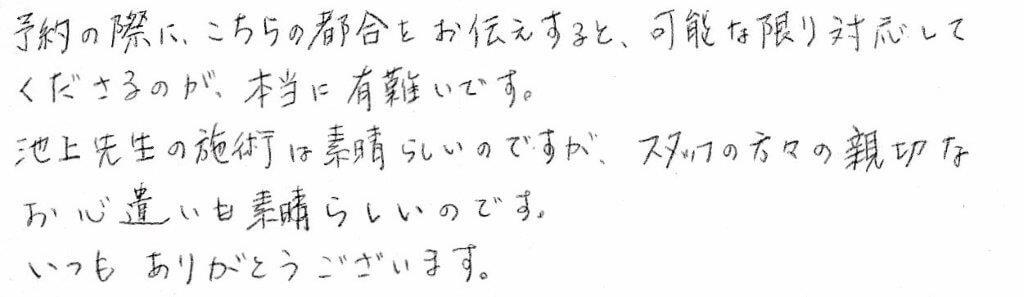 予約の際に、こちらの都合をお伝えすると、可能な限り対応して
くださるのが、本当に有難いです。
池上先生の施術は素晴らしいのですが、スタッフの方々の親切な
お心遣いも素晴らしいのです。
いつもありがとうございます。